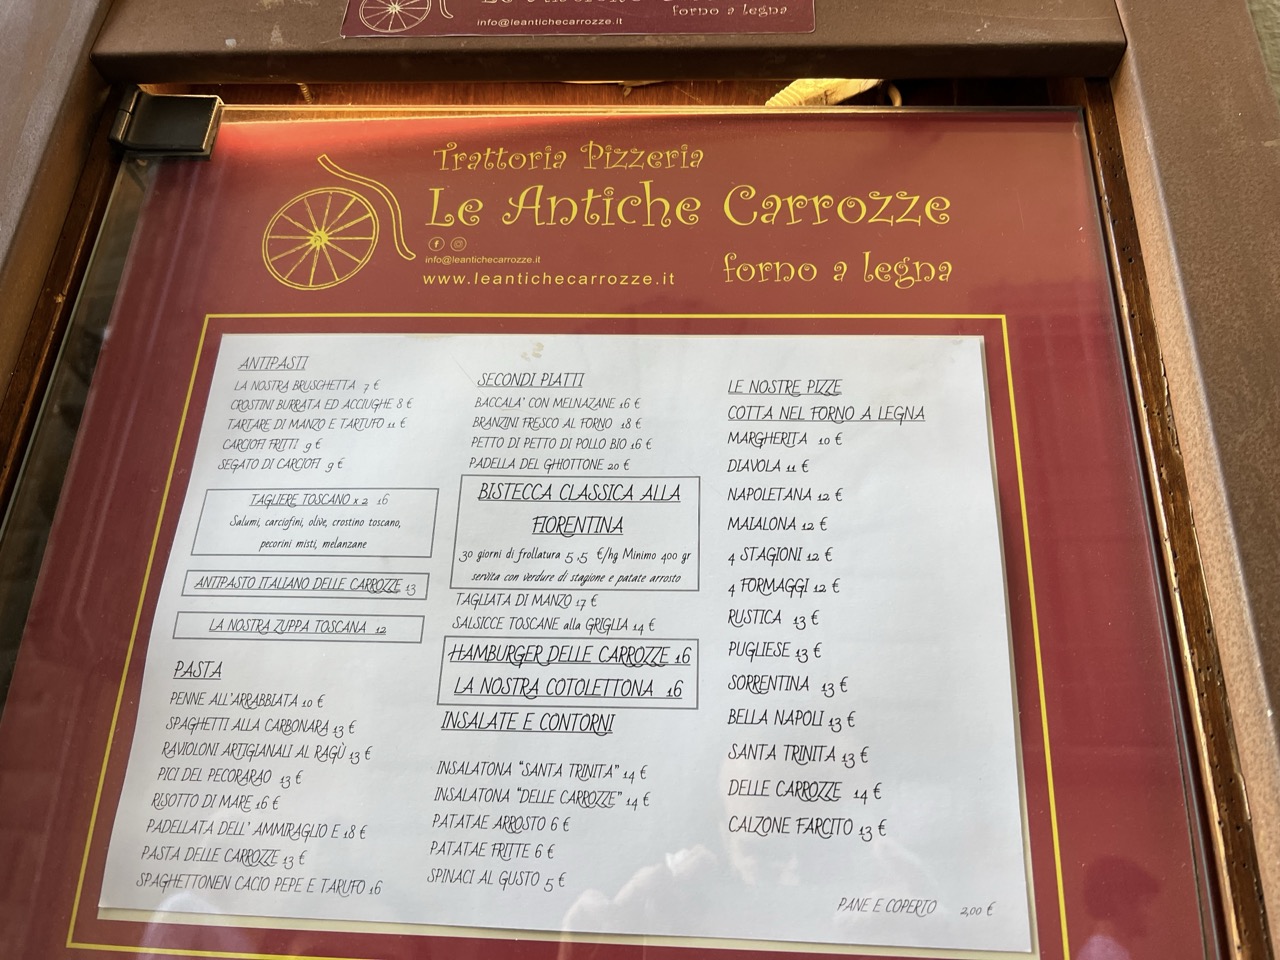 info@leantichecarrozze.it
forno a legna
Trattoria Pizzeria
Le Antiche Carrozze
info@leantichecarrozze.it
www.leantichecarrozze.it
forno a legna
ANTIPASTI
LA NOSTRA BRUSCHETTA 7 €
CROSTINI BURRATA ED ACCIUGHE 8 €
TARTARE DI MANZO E TARTUFO 11 €
CARCIOFI FRITTI 9 €
SEGATO DI CARCIOFI 9 €
TAGLIERE TOSCANO x 2 16
Salumi, carciofini, olive, crostino toscano,
pecorini misti, melanzane
ANTIPASTO ITALIANO DELLE CARROZZE 13
LA NOSTRA ZUPPA TOSCANA 12
PASTA
PENNE ALL'ARRABBIATA 10 €
SPAGHETTI ALLA CARBONARA 13 €
RAVIOLONI ARTIGIANALI AL RAGÙ 13 €
PICI DEL PECORARAO 13 €
RISOTTO DI MARE 16 €
PADELLATA DELL' AMMIRAGLIO E 18 €
PASTA DELLE CARROZZE 13 €
SPAGHETTONEN CACIO PEPE E TARUFO 16
SECONDI PIATTI
BACCALA' CON MELNAZANE 16 €
BRANZINI FRESCO AL FORNO 18 €
PETTO DI PETTO DI POLLO BIO 16 €
PADELLA DEL GHIOTTONE 20 €
BISTECCA CLASSICA ALLA
FIORENTINA
30 giorni di frollatura 5,5 €/hg Minimo 400 gr
servita con verdure di stagione e patate arrosto
TAGLIATA DI MANZO 17 €
SALSICCE TOSCANE alla GRIGLIA 14 €
HAMBURGER DELLE CARROZZE 16
LA NOSTRA COTOLETTONA 16
INSALATE E CONTORNI
INSALATONA "SANTA TRINITA" 14 €
INSALATONA "DELLE CARROZZE" 14 €
PATATAE ARROSTO 6 €
PATATAE FRITTE 6 €
SPINACI AL GUSTO 5 €
LE NOSTRE PIZZE
COTTA NEL FORNO A LEGNA
MARGHERITA 10 €
DIAVOLA 11 €
NAPOLETANA 12 €
MAIALONA 12 €
4 STAGIONI 12 €
4 FORMAGGI 12 €
RUSTICA 13 €
PUGLIESE 13 €
SORRENTINA 13 €
BELLA NAPOLI 13 €
SANTA TRINITA 13 €
DELLE CARROZZE 14 €
CALZONE FARCITO 13 €
PANE E COPERTO 2,00 €